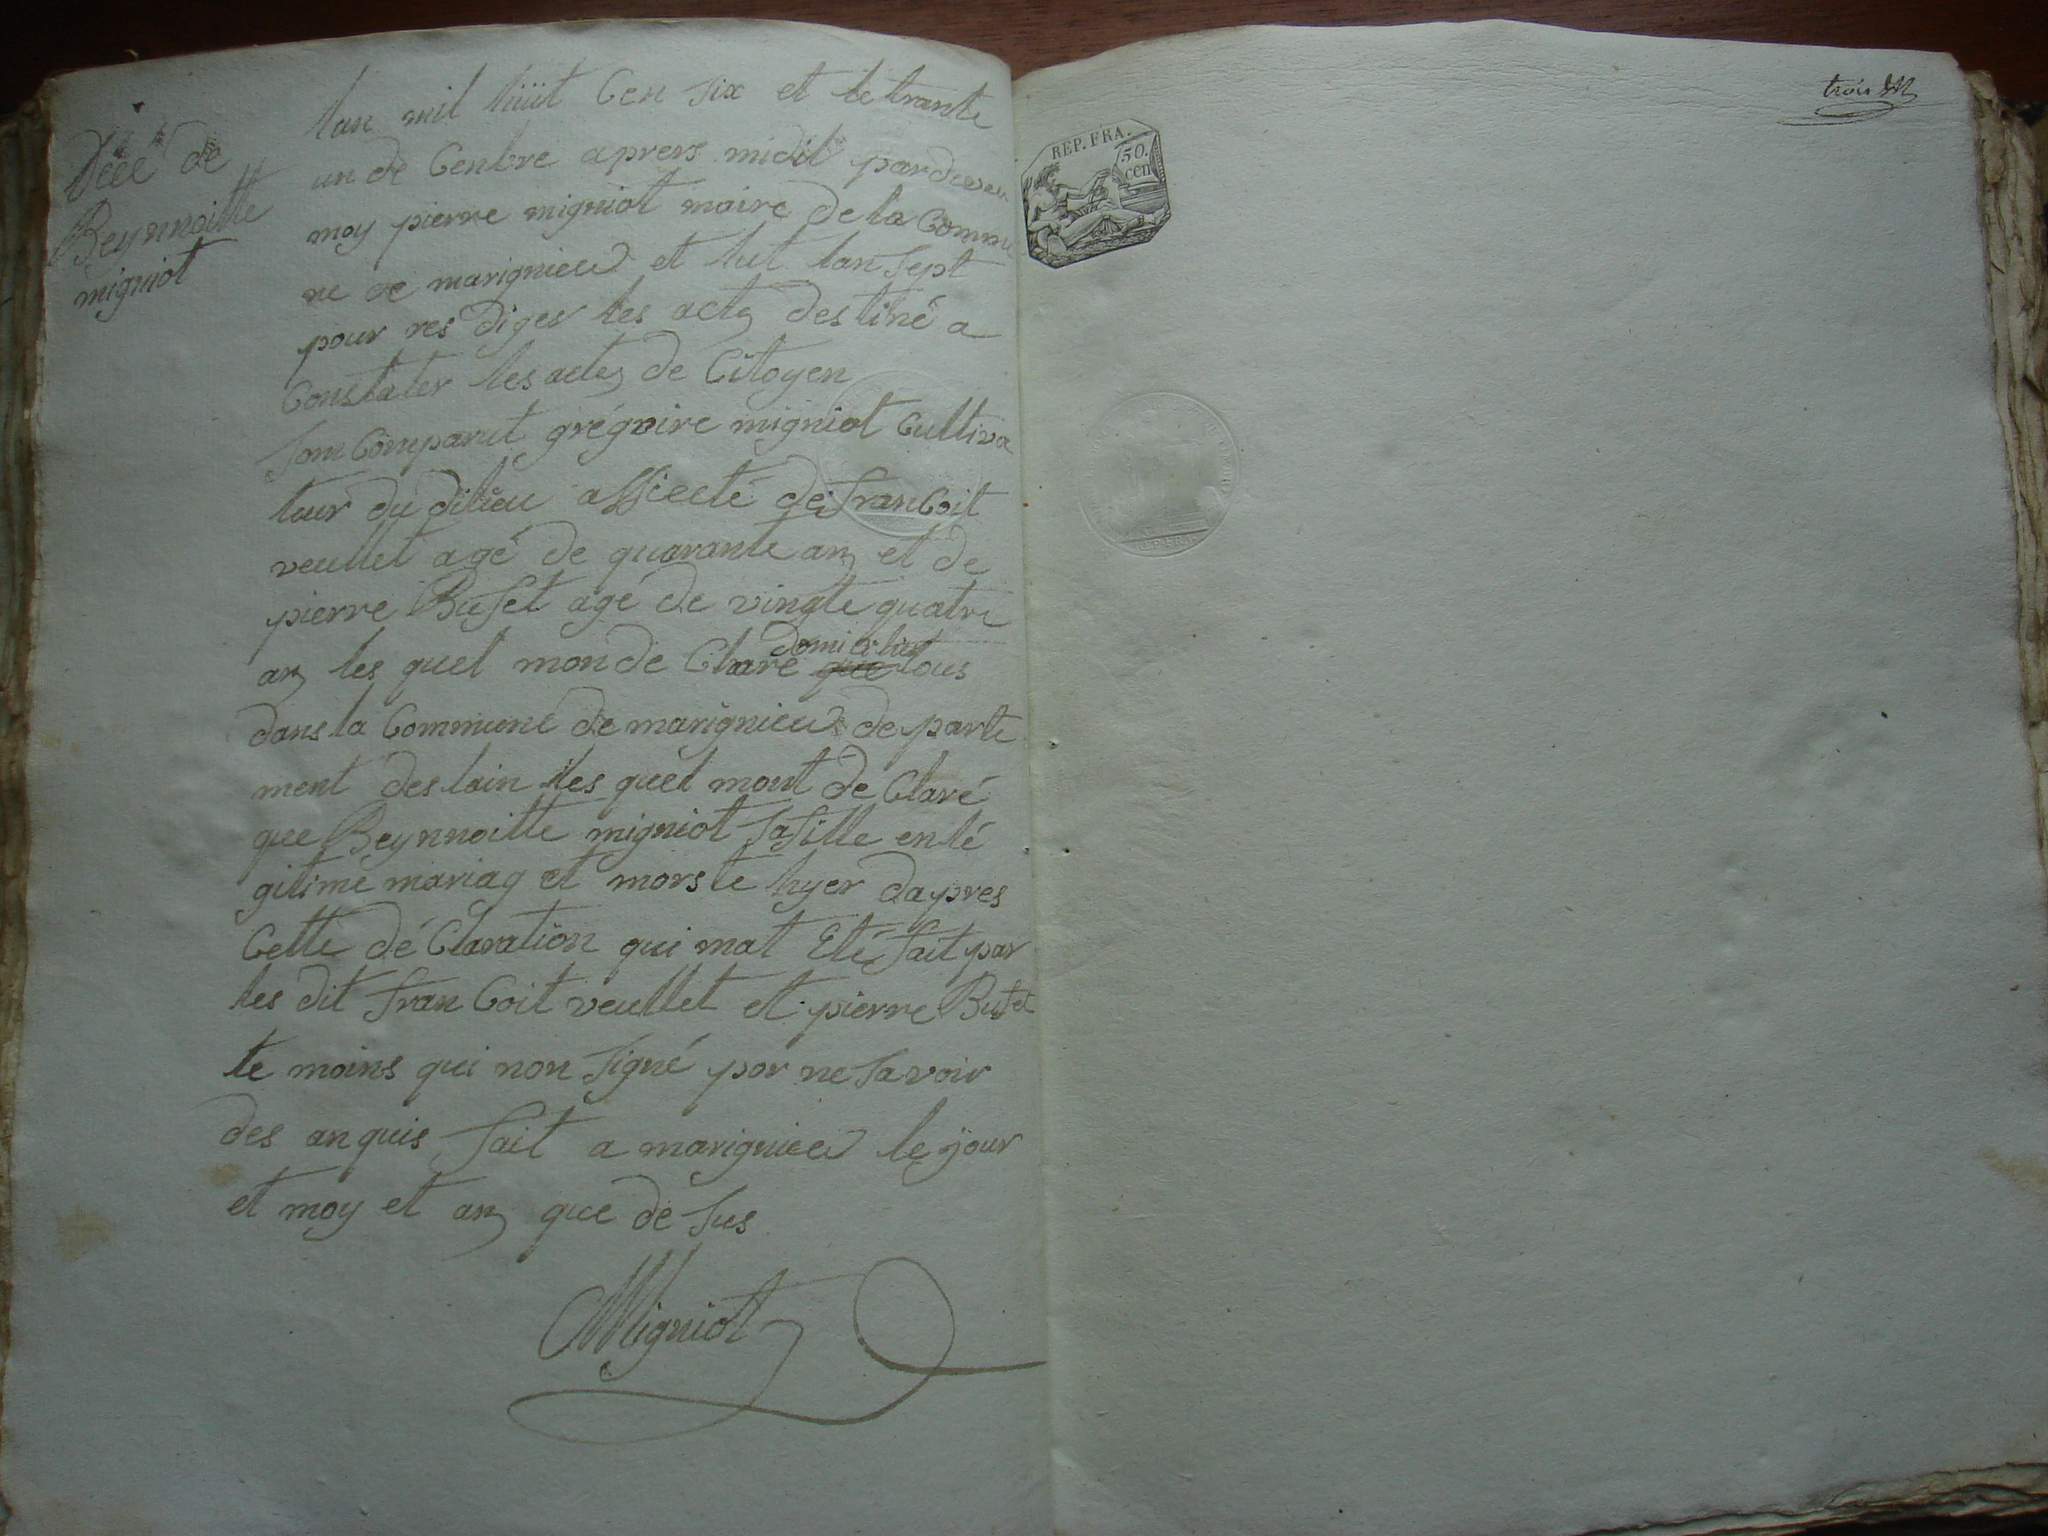 Décé de
Beynnoitte
migniot
lan mil hüit Cen six et le trante
un de Cenbre aprers midit par deven
moy pierre migniot maire de la Commu
ne de marignieu et lut lan sept
pour res diger les acte destiné a
Constater les actes de Citoyen
som Comparut grégoire migniot Cultiva
teur du dilieu assiecté de franCoit
veullet agé de quarante ans et de
pierre Bufet agé de vingte quatre
ans les quel mon de Claré que domicilier tous
dans la Commune de marignieu de parte
ment des lain les quel mont de Claré
que Beynnoitte migniot sa fille en lé
gitime mariag et morste hyer dapres
Cette dé Claration qui mat Eté fait par
les dit fran Coit veullet et pierre Bufet
te moins qui non signé por ne savoir
des an quis fait a marignieu le jour
et moy et ans que de sus
Migniot
REP. FRA.
50.
cen
trois